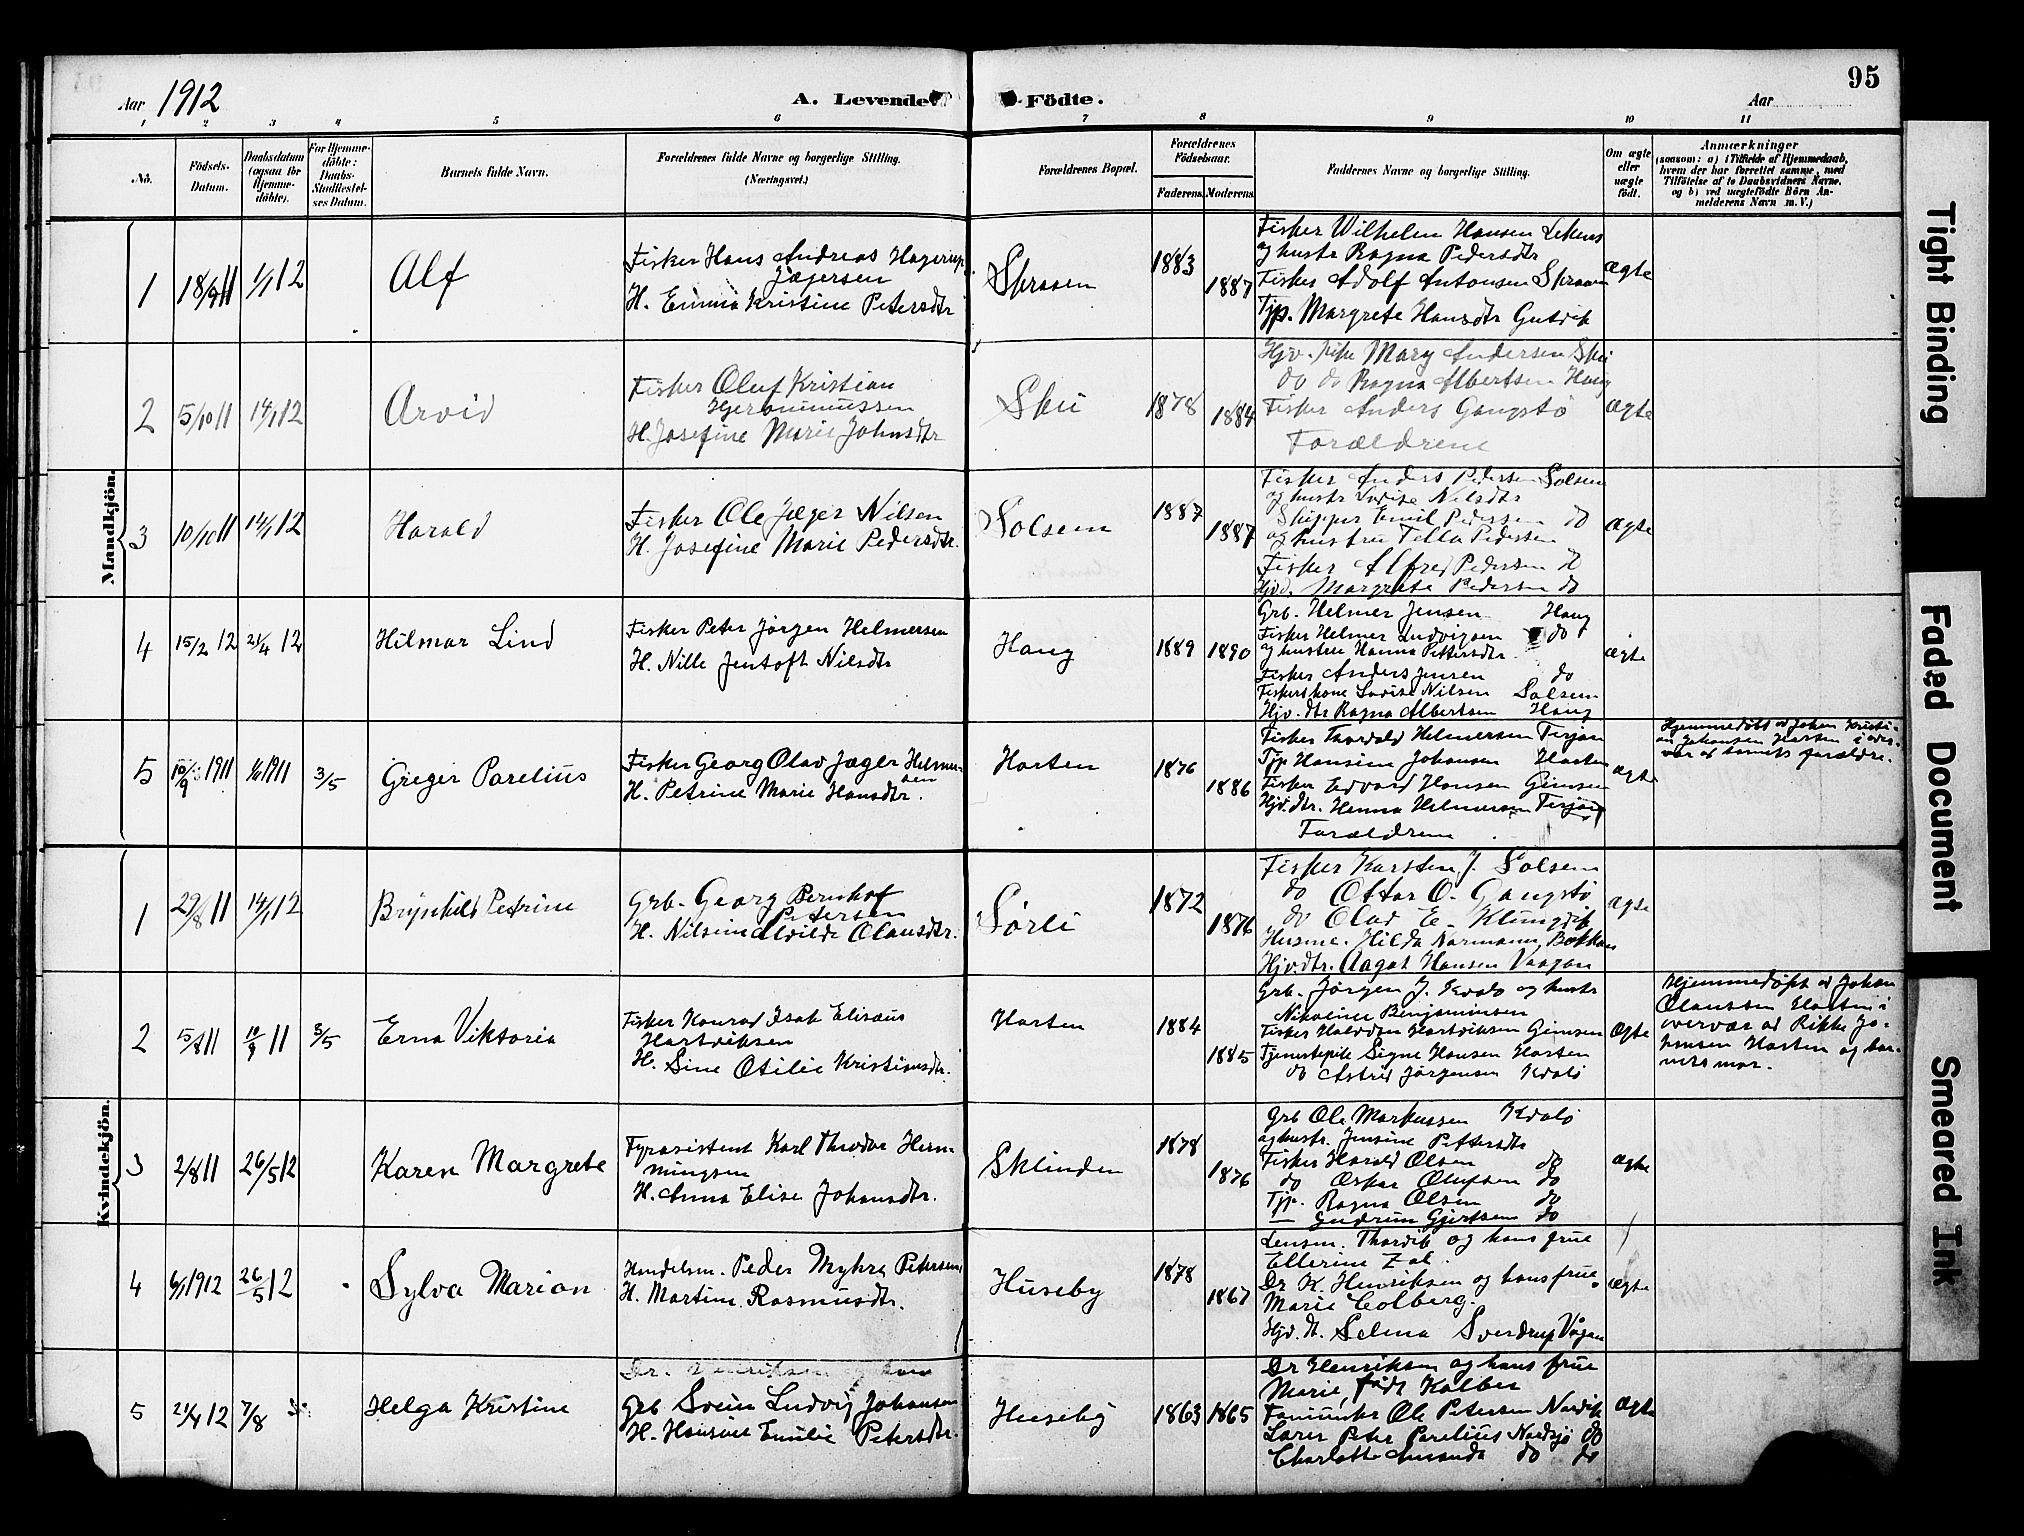 95
Aar 1912
A. Levende
Födte.
Aar
1 2 3 4 5 6 7 8 9 10 11
No.
Födsels-Datum.
Daabsdatum (ogsaa for Hjemme-döbte).
For Hjemme-döbte: Daabs-Stadfæstel-ses Datum.
Barnets fulde Navn.
Forældrenes fulde Navne og borgerlige Stilling.
(Næringsvei.)
Forældrenes Bopæl.
Forældrenes Födselsaar.
Faderens. Moderens.
Faddernes Navne og borgerlige Stilling.
Om ægte eller uægte födt.
Anmærkninger
(saasom: a) i Tilfælde af Hjemmedaab, hvem der har forrettet samme, med Tilföielse af to Daabsvidners Navne, og b) ved uægtefödte Börn An-melderens Navn m. V.)
Mandkjön.
1 18/9 11 1/1 12 Alf
Fisker Hans Andreas Hagerup
Jægersen
H. Emma Kristine Petersdtr
1883 1887
Fisker Wilhelm Hansen Lekens
og hustr Ragna Pedersdtr
Fisker Adolf Antonsen
Tjp. Margrete Hansdtr Gutvik
ægte
2 5/10 11 14/1 12 Arvid
Fisker Oluf Kristian
Hjeronimussen
H. Josefine Marie Johnsdtr
1878 1884
Hjv. Mary Andersen
do do Ragna Albertsen Haug
Fisker Anders Gangstø
Forældrene
ægte
3 10/10 11 14/1 12 Harald
Fisker Ole Jæger Nilsen
H. Josefine Marie Pedersdtr.
Solsem
1887 1887
Fisker Anders Pedersen Solsem
og hustr Lovise Nilsdtr
Skipper Emil Pedersen do
og hustru Tella Pedersen
Fisker Alfred Pedersen do
Hjvd. Margrete Pedersen do
ægte
4 15/2 12 21/4 12 Hilmar Lind
Fisker Peter Jørgen Helmersen
H. Nille Jentoft Nilsdtr
Haug
1889 1890
Grb. Helmer Jensen Haug
Fisker Helmer Ludvigsen do
og hustru Hanna Pettersdtr.
Fisker Anders Jensen do
Fiskerkone Lovise Nilsen Solsem
Hjv. dtr Ragna Albertsen Haug
ægte
5 10/9 1911 1911 3/5 Greger Parelius
Fisker Georg Olav Jæger Helmer-
sen
H. Petrine Marie Hansdtr.
Horten
1876 1886
Fisker Thorvald Helmersen
Tjp Hansine Johansen Horten
Fisker Edvard Hansen Gimsen
Hjv. dtr. Henna Helmersen
Forældrene
ægte
Hjemmedøbt av Johan Kristi-
an Johansen Horten i over-
vær av barnets forældre.
Kvindekjön.
1 29/8 11 14/1 12 Brynhild Petrine
Grb. Georg Bernhof
Petersen
H. Nilsine Alvilde Olausdtr.
Sørli
1872 1876
Fisker Karsten J. Solsem
do Ottar O. Gangstø
do Olav E. Klungvik
Husme. Hilda Normann, Bekkan
Hjv. dtr. Aagot Hansen Vaagan
ægte
2 5/8 11 10/9 11 3/5 Erna Viktoria
Fisker Konrad Isak Elisæus
Hartviksen
H. Sine Otilie Kristiansdtr.
Horten
1884 1885
Grb. Jørgen J. Kvalø og hustr
Nikoline Benjaminsen
Fisker Halvdan Hartviksen Gimsen
Tjenestepike Signe Hansen Horten
do Astrid Jørgensen Kvalø
Ægte
Hjemmedøpt av Johan
Olaussen Horten i
overvær av Rikke Jo-
hansen Horten og bar-
nets mor.
3 2/8 11 26/5 12 Karen Margrete
Fyrassistent Karl Theodor Hem-
mingsen
H. Anna Elise Johansdtr.
Sklinden
1878 1876
Grb Ole Markussen Kvalø
og hustr. Jensine Pettersdtr
Fisker Harald Olsen do
do Oskar Olufsen do
Tjp. Ragna Olsen do
— Gudrun Gjertsen do
ægte
4 6/1 1912 26/5 12 Sylva Marion
Handelsm. Peder Myhre Petersen
H. Martine Rasmusdtr.
Huseby
1878 1867
Lensm. Thorvik og hans frue
Ellerine
Dr. K. Henriksen og hans frue
Marie Colberg.
Hjv. dt. Selma Sverdrup Vågan
ægte
5 21/4 12 7/8 Helga Kristine
Dr. Henriksen og hans
Grb Svein Ludvig Johansen
H. Hansine Emilie Petersdtr.
Huseby
1863 1865
Dr Henriksen og hans frue
Marie, født Kolber
Ole Petersen Nordvik
Lærer Peter Parelius do
Charlotte Amanda do do
Ægte
Tight Binding
Faded Document
Smeared Ink